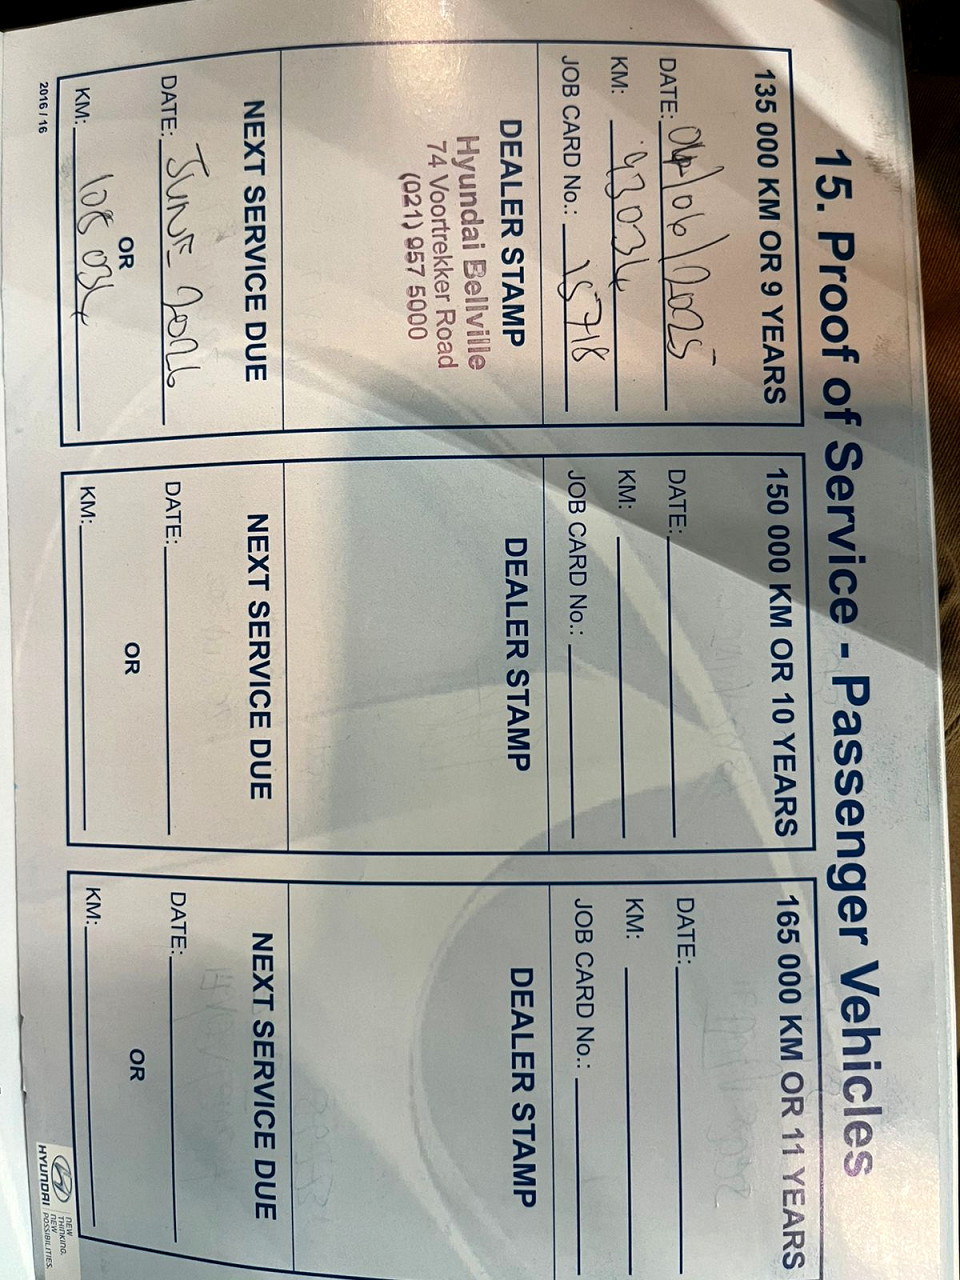 15. Proof of Service - Passenger Vehicles
135 000 KM OR 9 YEARS
DATE: 04/06/2025
KM: 93034
JOB CARD No.: 15718
DEALER STAMP
Hyundai Bellville
74 Voortrekker Road
(021) 957 5000
NEXT SERVICE DUE
DATE: JUNE 2026
OR
KM: 108 034
150 000 KM OR 10 YEARS
DATE:
KM:
JOB CARD No.:
DEALER STAMP
NEXT SERVICE DUE
DATE:
OR
KM:
165 000 KM OR 11 YEARS
DATE:
KM:
JOB CARD No.:
DEALER STAMP
NEXT SERVICE DUE
DATE:
OR
KM:
2016 / 16
HYUNDAI
NEW
THINKING.
NEW
POSSIBILITIES.